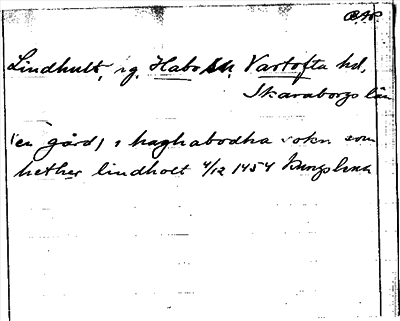 Lindhult, ig. Habo sn. Vartofta hd,
Skaraborgs län
(en gård) i haghabodha sokn som
hether lindholt 4/12 1454